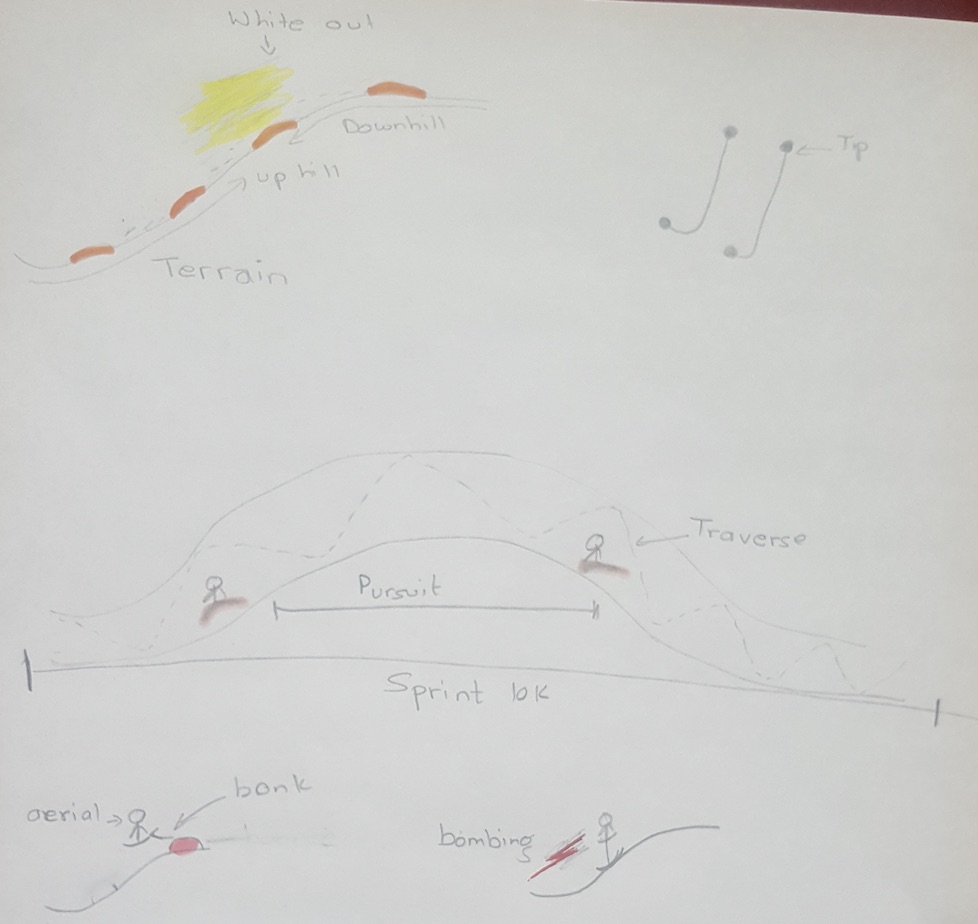 White out
Downhill
up hill
Terrain
Tip
Traverse
Pursuit
Sprint 10K
aerial
bonk
bombing